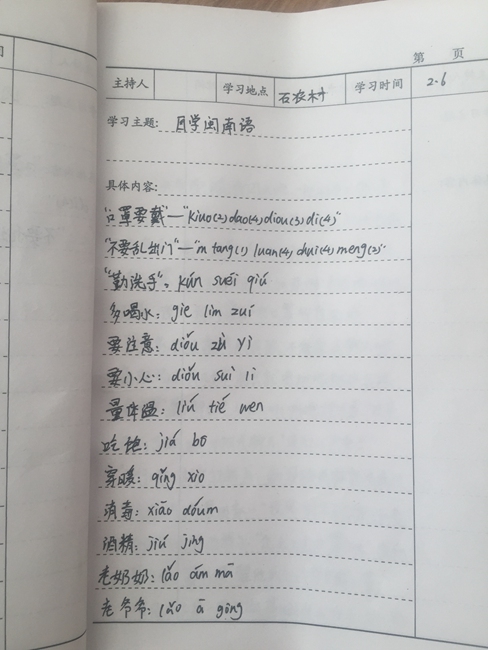 第 页
主持人 学习地点 石农村 学习时间 2.6
学习主题: 自学闽南语
具体内容:
"口罩要戴"—"kiuo(2)dao(4)diou(3)di(4)"
"不要乱出门"—"m tang(1) luan(4) chui(4) meng(2)"
"勤洗手": kún suěi qiú
多喝水: gie lim zuí
要注意: diǒu zù yì
要小心: diǒu suì lì
量体温: liú tié wen
吃饱: jiá bō
穿暖: qǐng xio
消毒: xiāo dóum
酒精: jiú jīng
老奶奶: lǎo ám mā
老爷爷: lǎo ā gōng